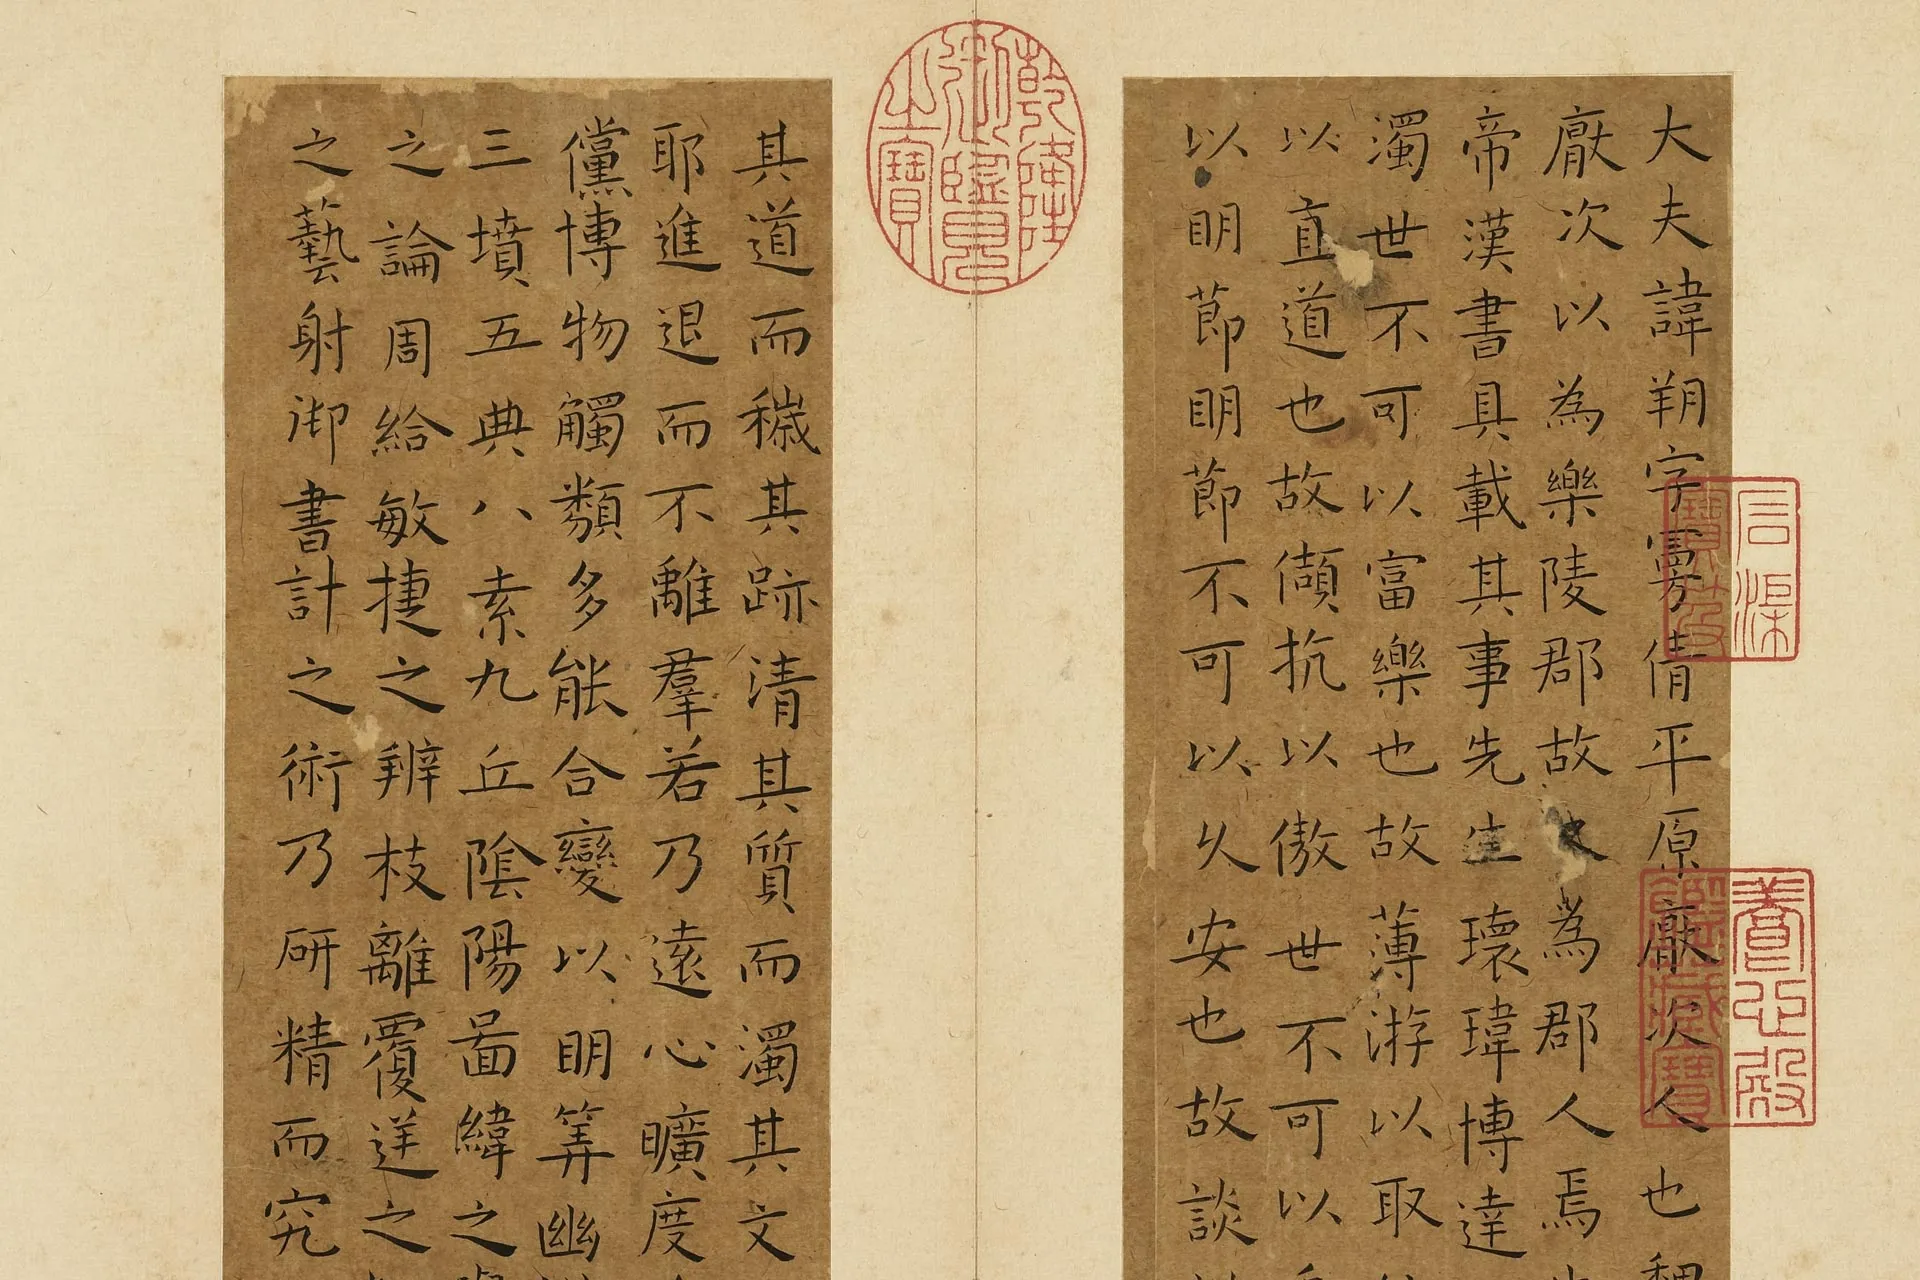 大夫諱朔字曼倩平原厭次人也魏
厭次以為樂陵郡故又為郡人焉
帝漢書具載其事先生瓌瑋博達
濁世不可以富樂也故薄游以取
以直道也故傾抗以傲世不可以垂
以明節明節不可以久安也故談
其道而穢其跡清其質而濁其文
耶進退而不離羣若乃遠心曠度
儻博物觸類多能合變以明筭幽
三墳五典八素九丘陰陽圖緯之學
之論周給敏捷之辨枝離覆逆之
之藝射御書計之術乃研精而究
石渠寶笈
養心殿鑑藏寶
乾隆御覽之寶